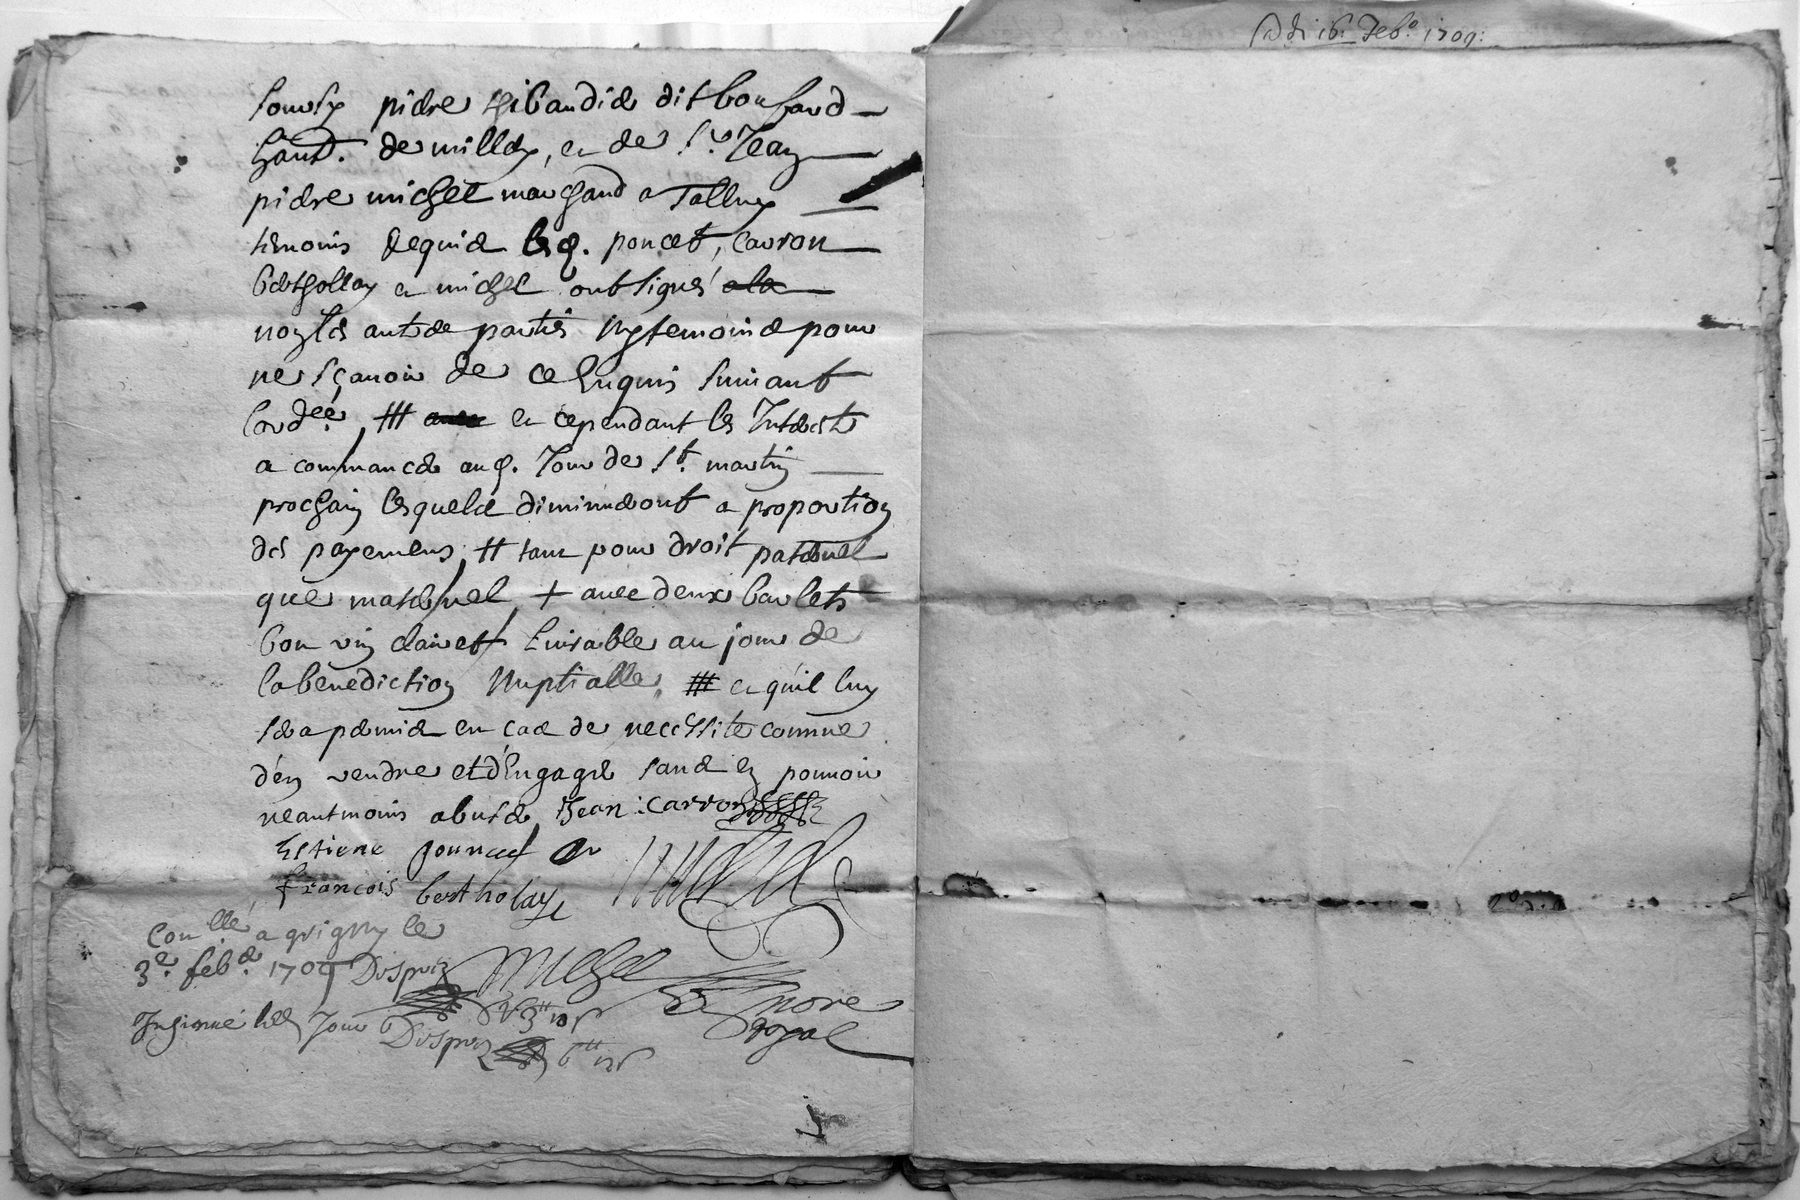 Adi 16: Feb.o 1709:
pierre thibaudier dit bouffard
habt. de millery, et de sr. Jean
pierre michel marchand a Talluy
temoins requis lesd. poncet, Carron
bertholley et michel ont signés
non les autres parties ny temoins pour
ne sçavoir de ce Enquis suivant
lordce. ### et cependant les Interests
a commancer aud. Jour de st. martin
prochain lesquels diminueront a proportion
des payemens, ## tant pour droit paternel
que maternel + avec deux barlets
bon vin clairet buvable au jour de
la benediction Nuptialle. ### et qu'il luy
sera permis en cas de necessité comme
d'en vendre et d'Engager sans en pouvoir
neantmoins abuser Jean : Carron
Estiene poncet
francois bertholay
Conllé, a grigny le
3e. febr. 1709 Despriz
michel
nore
royal
Insinué led. Jour Despriz